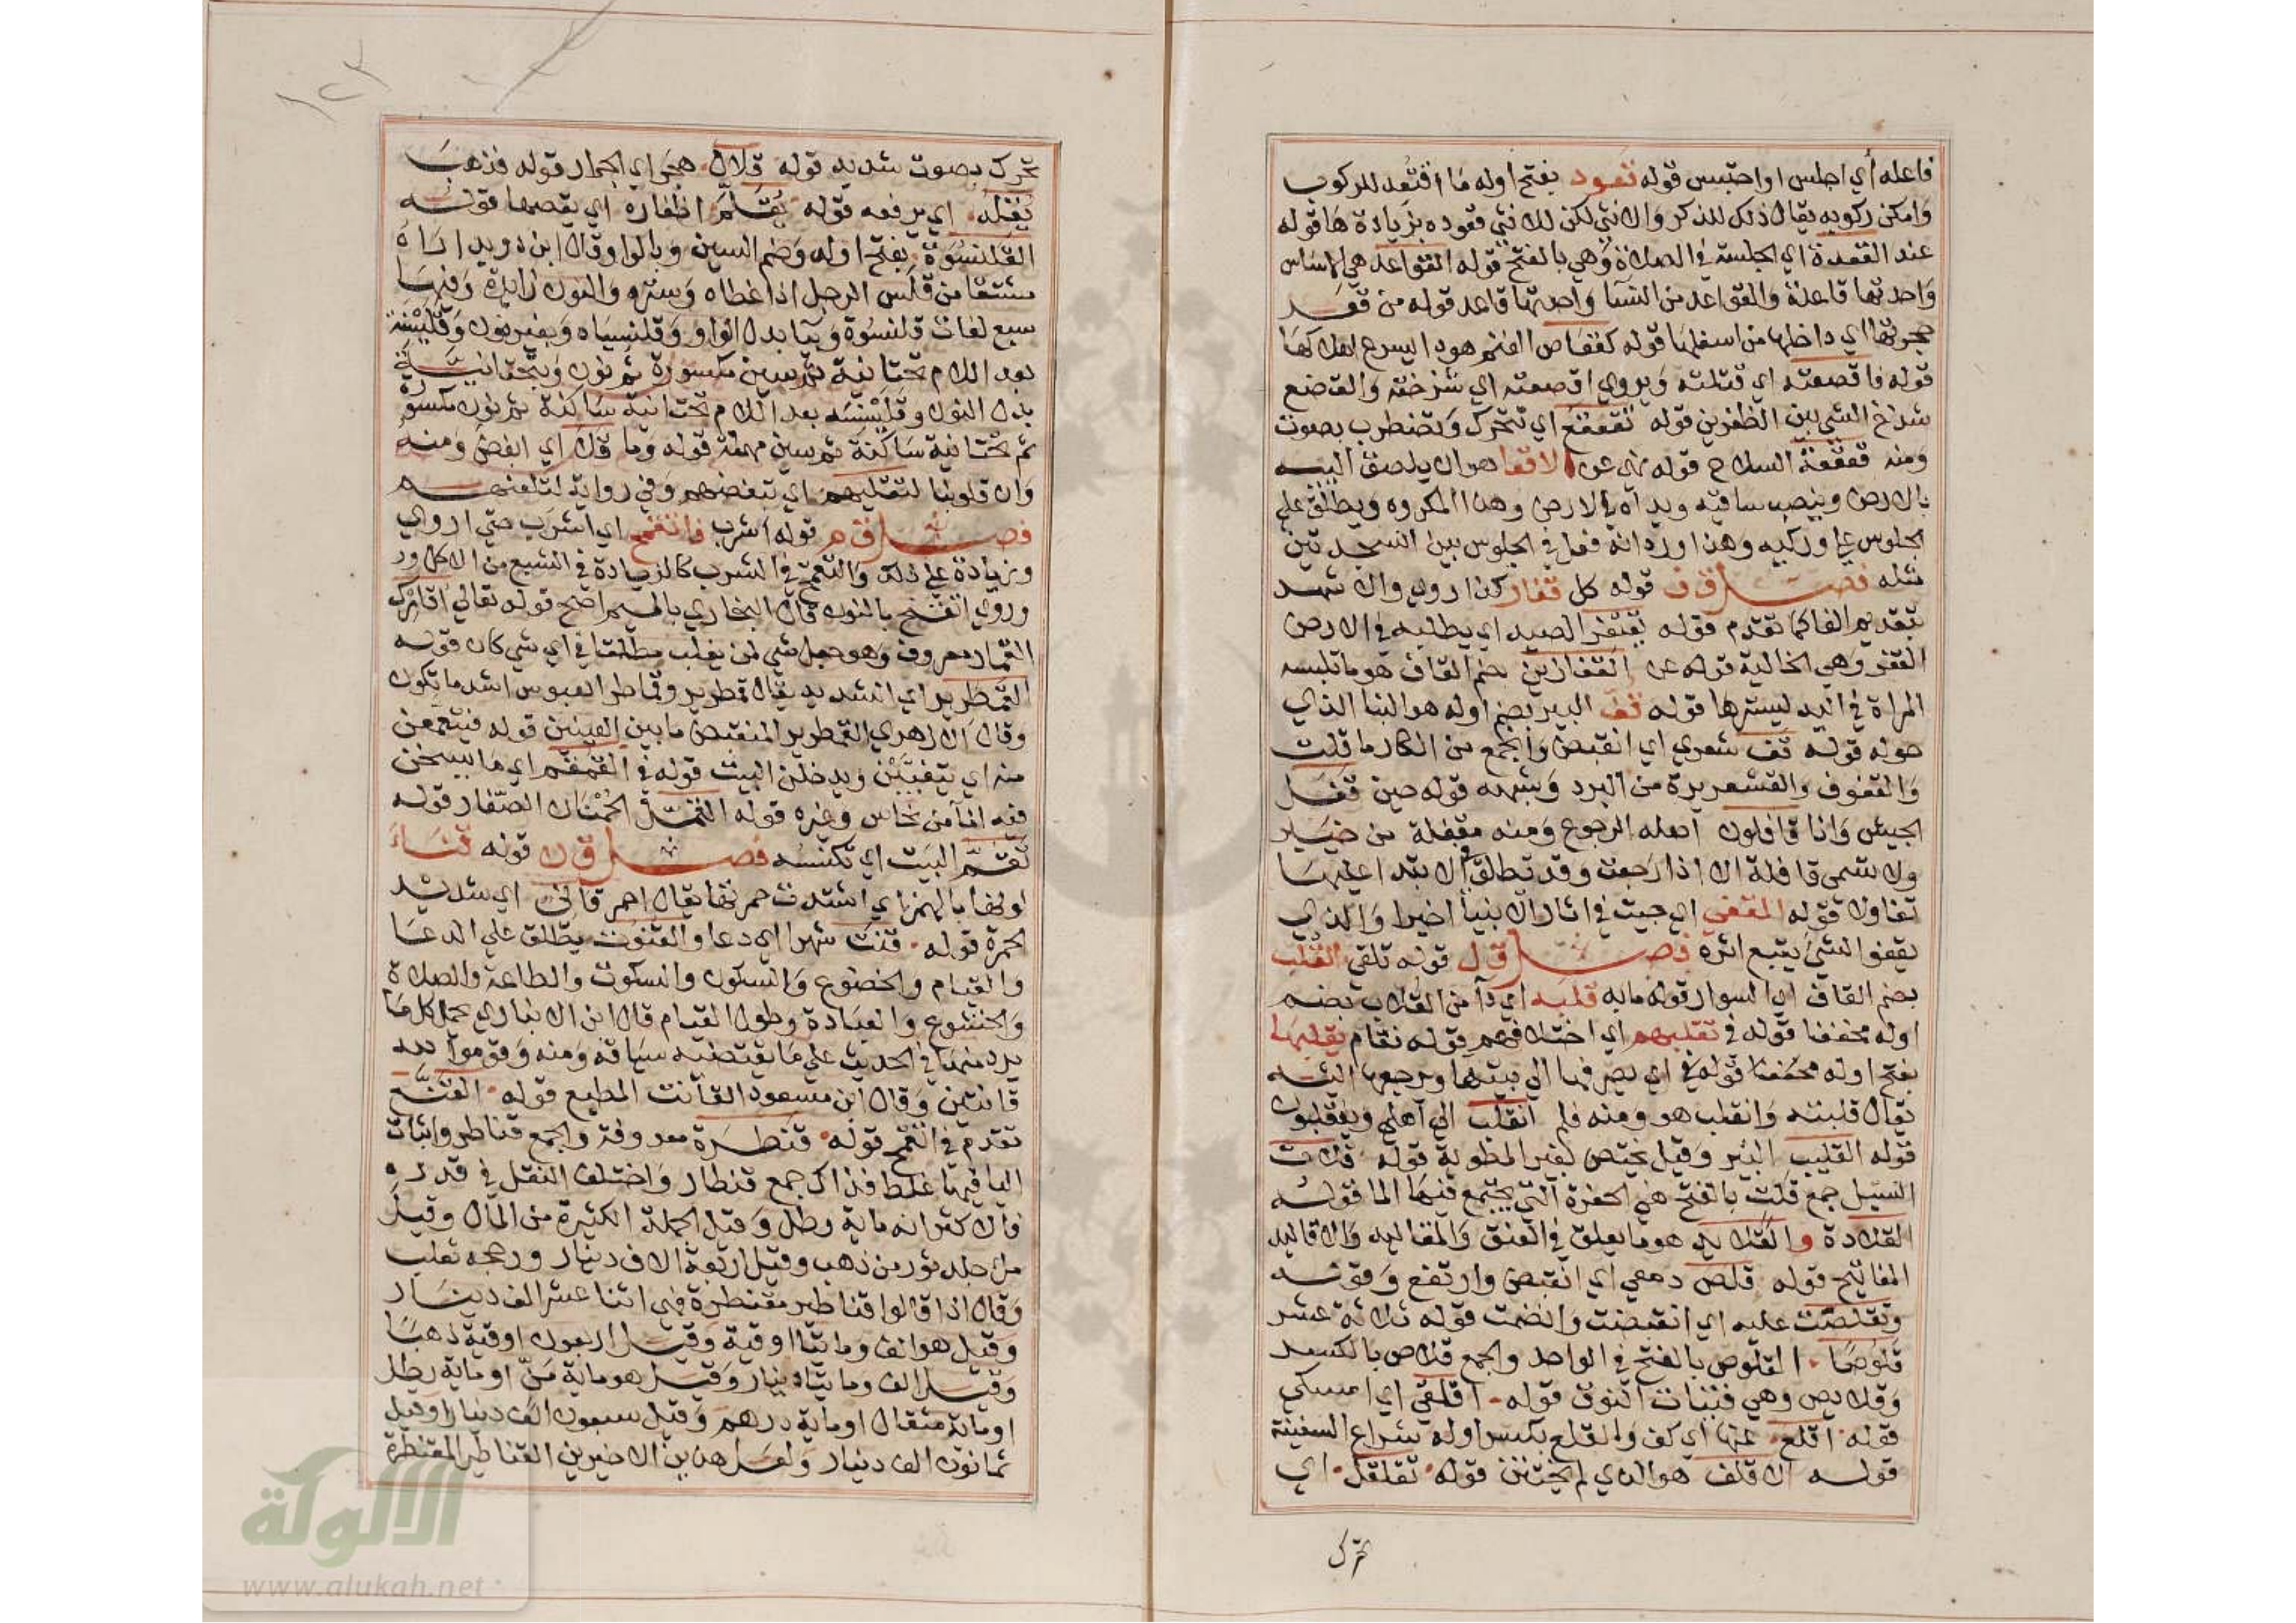 فاعله أي اجلس او احتبس قوله قعود بفتح اوله ما اقتعد للركوب
وامكن ركوبه يقال ذلك للذكر والانثى لكن للانثى قعوده بزيادة ها قوله
عند القعدة اي الجلسة في الصلاة وهي بالفتح قوله القواعد هي الاساس
واحدتها قاعدة والقواعد من النسا واحدتها قاعد قوله من قعر
حجرتها اي داخلها من اسفلها قوله كقعاص الغنم هو دا يسرع اهلاكها
قوله فاقصعته اي قتلته ويروي اقصعته اي شدخته والقصع
شدخ الشي بين الظفرين قوله تقعقع اي تتحرك وتضطرب بصوت
ومنه قعقعة السلاح قوله نهي عن الاقعا هو ان يلصق اليتيه
بالارض وينصب ساقيه ويداه في الارض وهذا المكروه ويطلق على
الجلوس على وركيه وهذا ورد انه فعل في الجلوس بين السجدتين
فصل ق ف قوله كل قفار كذا روي والاشهد
بتقديم الفا كما تقدم قوله يقتفر الصيد اي يطلبه في الارض
القفر وهي الخالية قوله عن القفازين بضم القاف هو ما تلبسه
المراة في اليد ليسترها قوله قف البير بضم اوله هو البنا الذي
حوله قوله قف شعري اي انقبض واجمع من انكار ما قلت
والقفوف والقشعريرة من البرد وشبهه قوله حين قفل
الجيش وانا قافلون اصله الرجوع ومنه مقفلة من خيبر
ولا تسمى قافلة الا اذا رجعت وقد تطلق في الابتدا عليها
تفاولا قوله المقفي اي جيت في اثار الانبيا اخيرا والذي
يقفوا الشي يتبع اثره فصل ق ل قوله تلقي القلب
بضم القاف اي السوار قوله ما به قلبه اي دا من القلاب بضم
اوله مخففا قوله في تقلبهم اي اختلافهم قوله نقام يقلبها
بفتح اوله مخففا اي يصرفها الي بيتها ويرجعها اليه
يقال قلبته وانقلب هو ومنه فلم انقلب الي اهلي وينقلبون
قوله القليب البير وقيل يختص بغير المطوية قوله قلات
السيل جمع قلت بالفتح هي الحفرة التي يجتمع فيها الما قوله
القلادة والقلايد هو ما يعلق في العنق والمقاليد والاقاليد
المفاتيح قوله قلص دمعي اي انقبض وارتفع وقوله
وتقلصت عليه اي انقبضت وانضمت قوله ثلاثة عشر
قلوصا القلوص بالفتح في الواحد والجمع قلاص بالكسر
وقلايص وهي فتيات النوق قوله اقلعي اي امسكي
قوله اقلع عنها اي كف والقلع بكسر اوله شراع السفينة
قوله الاقلف هو الذي لم يختتن قوله تقلقل اي
تحرك
تحرك بصوت شديد قوله قلال هجر اي الجرار قوله فذهب
يقله اي يرفعه قوله يقلم اظفاره اي يقصها قوله
القلنسوة بفتح اوله وضم السين وبالواو وقال ابن دريد اراه
مشتقا من قلس الرجل اذا غطاه وستره والنون زايدة وفيها
سبع لغات قلنسوة وبيا بدل الواو وقلنسياه وبغير نون وقليسنة
بعد اللام تحتانية ثم سين مكسورة ثم نون وبتحتانية
بدل النون وقلينسه بعد اللام تحتانية ساكنة ثم نون مكسورة
ثم تحتانية ساكنة ثم سين مهملة قوله وما قلى اي ابغض ومنه
وان قلوبنا لتقليهم اي تبغضهم وفي رواية لتلعنهم
فصل ق م قوله اشرب فاتقمح اي اشرب حتى اروي
وزيادة على ذلك والتقمح في الشرب كالزيادة في الشبع من الاكل ورد
وروي اتقنح بالنون قال البخاري بالميم اصح قوله تعالى اقامرك
القمار معروف وهو جعل شي لمن يغلب مطلقا في اي شي كان قوله
القمطرير اي الشديد يقال قمطرير وقماطر العبوس اشد ما يكون
وقال الازهري القمطرير المنقبض ما بين العينين قوله فينقمعن
منه اي يتغيبن ويدخلن البيت قوله في القمقم اي ما يسخن
فيه الما من نحاس وغيره قوله القمل الحمنان الصغار قوله
تقم البيت اي تكنسه فصل ق ن قوله قناء
لونها بالهمز اي اشتدت حمرتها يقال احمر قاني اي شديد
الحمرة قوله قنت شهرا اي دعا والقنوت يطلق على الدعا
والقيام والخضوع والسكون والسكوت والطاعة والصلاة
والخشوع والعبادة وطول القيام قال ابن الانباري يحمل كل ما
يرد منها في الحديث على ما يقتضيه سياقه ومنه وقوموا لله
قانتين وقال ابن مسعود القانت المطيع قوله القنح
تقدم في القمح قوله قنطرة معروفة والجمع قناطر واثبات
اليا فيها غلط فذاك جمع قنطار واختلف النقل في قدره
فالاكثر انه ماية رطل وقيل الجملة الكثيرة من المال وقيل
مل جلد ثور من ذهب وقيل اربعة الاف دينار ورجحه ثعلب
وقال اذا قالوا قناطير مقنطرة فهي اثنا عشر الف دينار
وقيل هو الف وماتيا اوقية وقيل اربعون اوقية ذهبا
وقيل الف وماتيا دينار وقيل هو ماية من او ماية رطل
او ماية مثقال او ماية درهم وقيل سبعون الف دينار وقيل
ثمانون الف دينار ولعل هذين الاخيرين القناطير المقنطرة
الألوكة
www.alukah.net